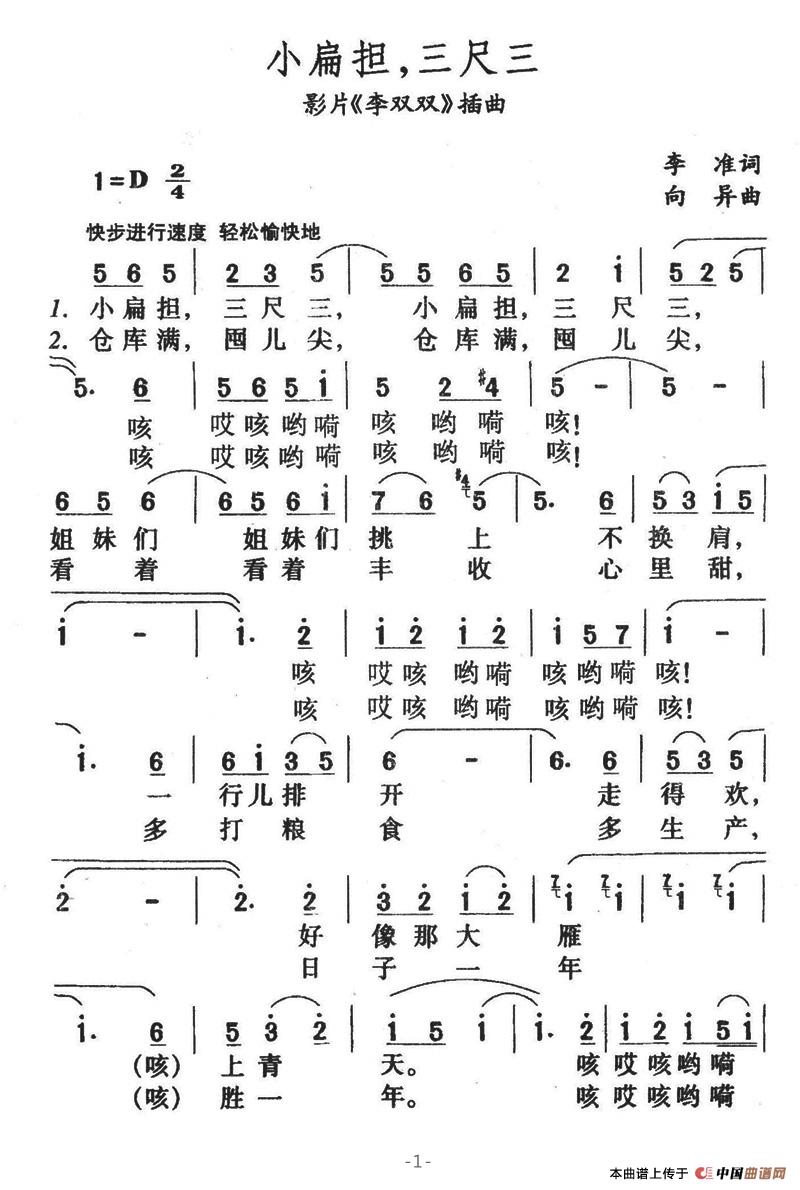 小扁担,三尺三
影片《李双双》插曲
李 准词
1=D 2/4
向 异曲
快步进行速度 轻松愉快地
5 6 5 | 2 3 5 | 5 5 6 5 | 2 i | 5 2 5 |
1. 小扁担, 三尺三, 小扁担, 三尺三,
2. 仓库满, 囤儿尖, 仓库满, 囤儿尖,
5. 6 | 5 6 5 i | 5 2 #4 | 5 - | 5 - |
咳 哎咳哟嗬 咳哟嗬 咳!
咳 哎咳哟嗬 咳哟嗬 咳!
6 5 6 | 6 5 6 i | 7 6 #4 5 | 5. 6 | 5 3 i 5 |
姐妹们 姐妹们 挑上 不换肩,
看着 看着 丰收 心里甜,
i - | i. 2 | i 2 i 2 | i 5 7 | i - |
咳 哎咳哟嗬 咳哟嗬 咳!
咳 哎咳哟嗬 咳哟嗬 咳!
i. 6 | 6 i 3 5 | 6 - | 6. 6 | 5 3 5 |
一 行儿排 开 走得欢,
多 打粮 食 多生产,
2 - | 2. 2 | 3 2 i 2 | 7 i 7 i | 7 i 7 i |
好 像那大 雁
日 子一 年
i. 6 | 5 3 2 | i 5 i | i. 2 | i 2 i 5 i |
(咳) 上青 天。 咳哎咳哟嗬
(咳) 胜一 年。 咳哎咳哟嗬
-1-
本曲谱上传于 中国曲谱网